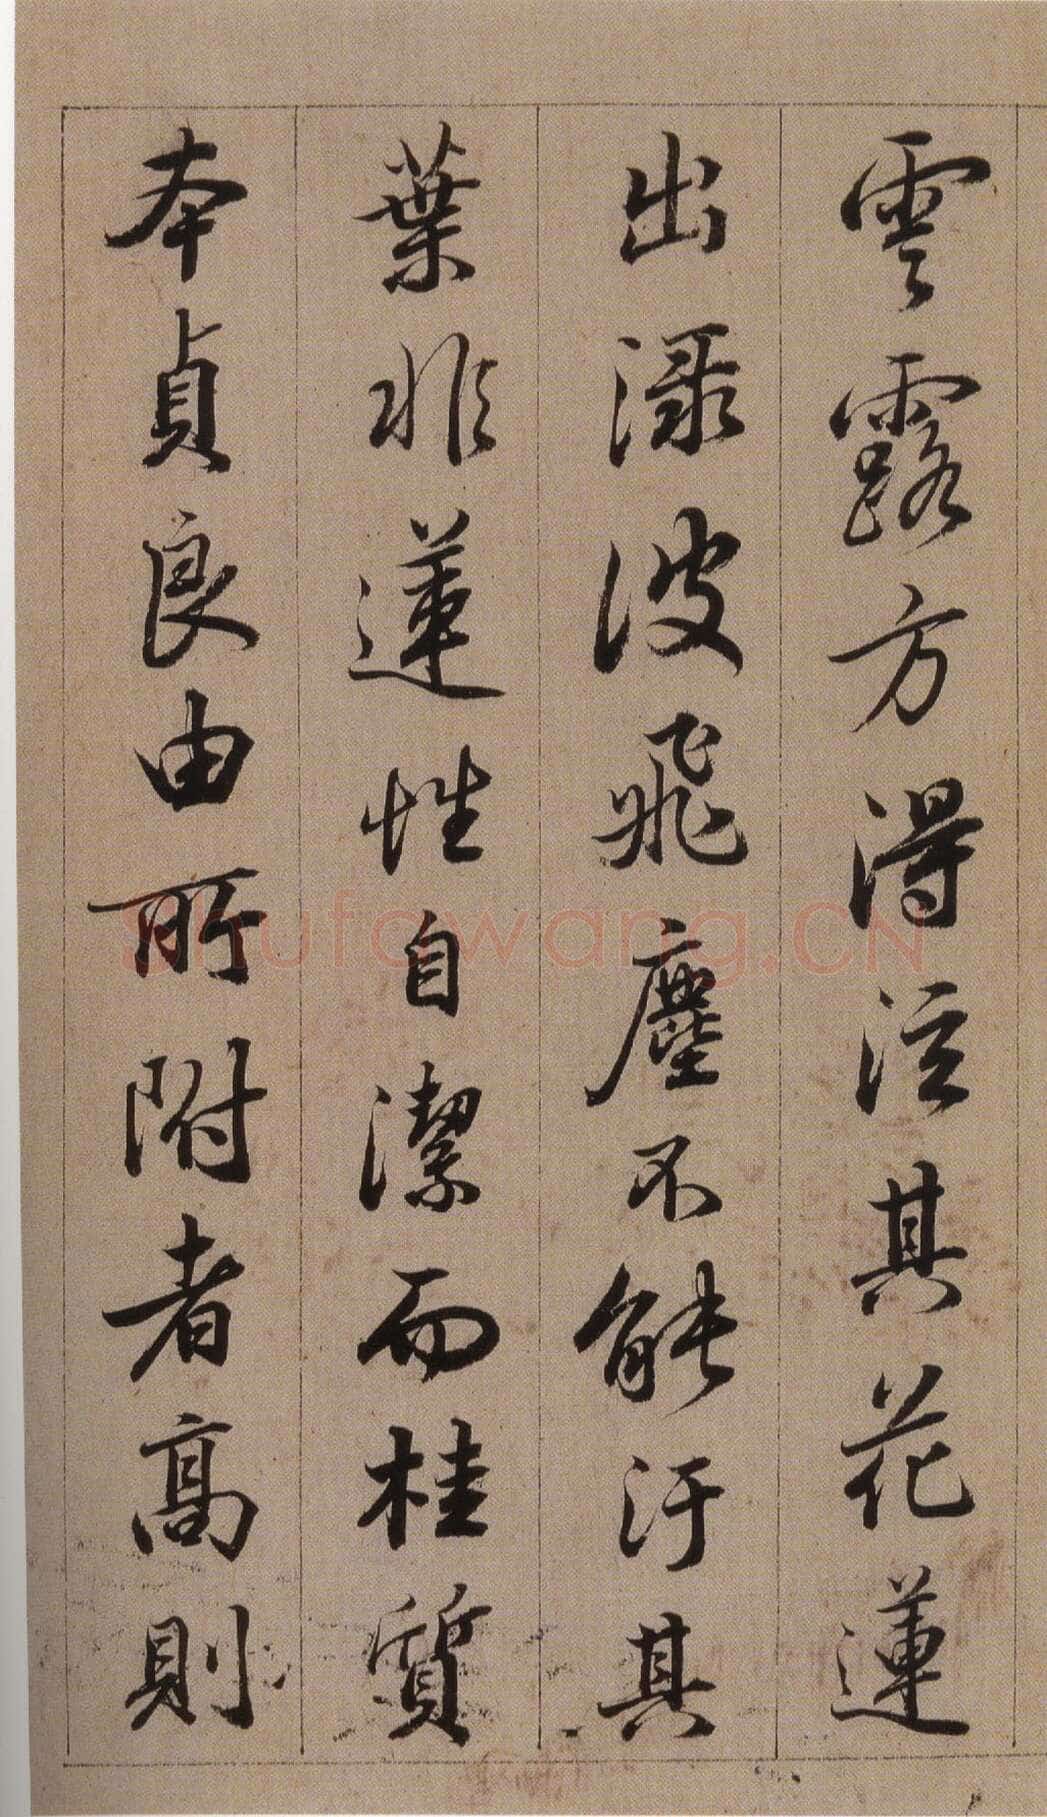 雲露方得泫其花蓮
出渌波飛塵不能汙其
葉非蓮性自潔而桂質
本貞良由所附者高則
shufawang.CN